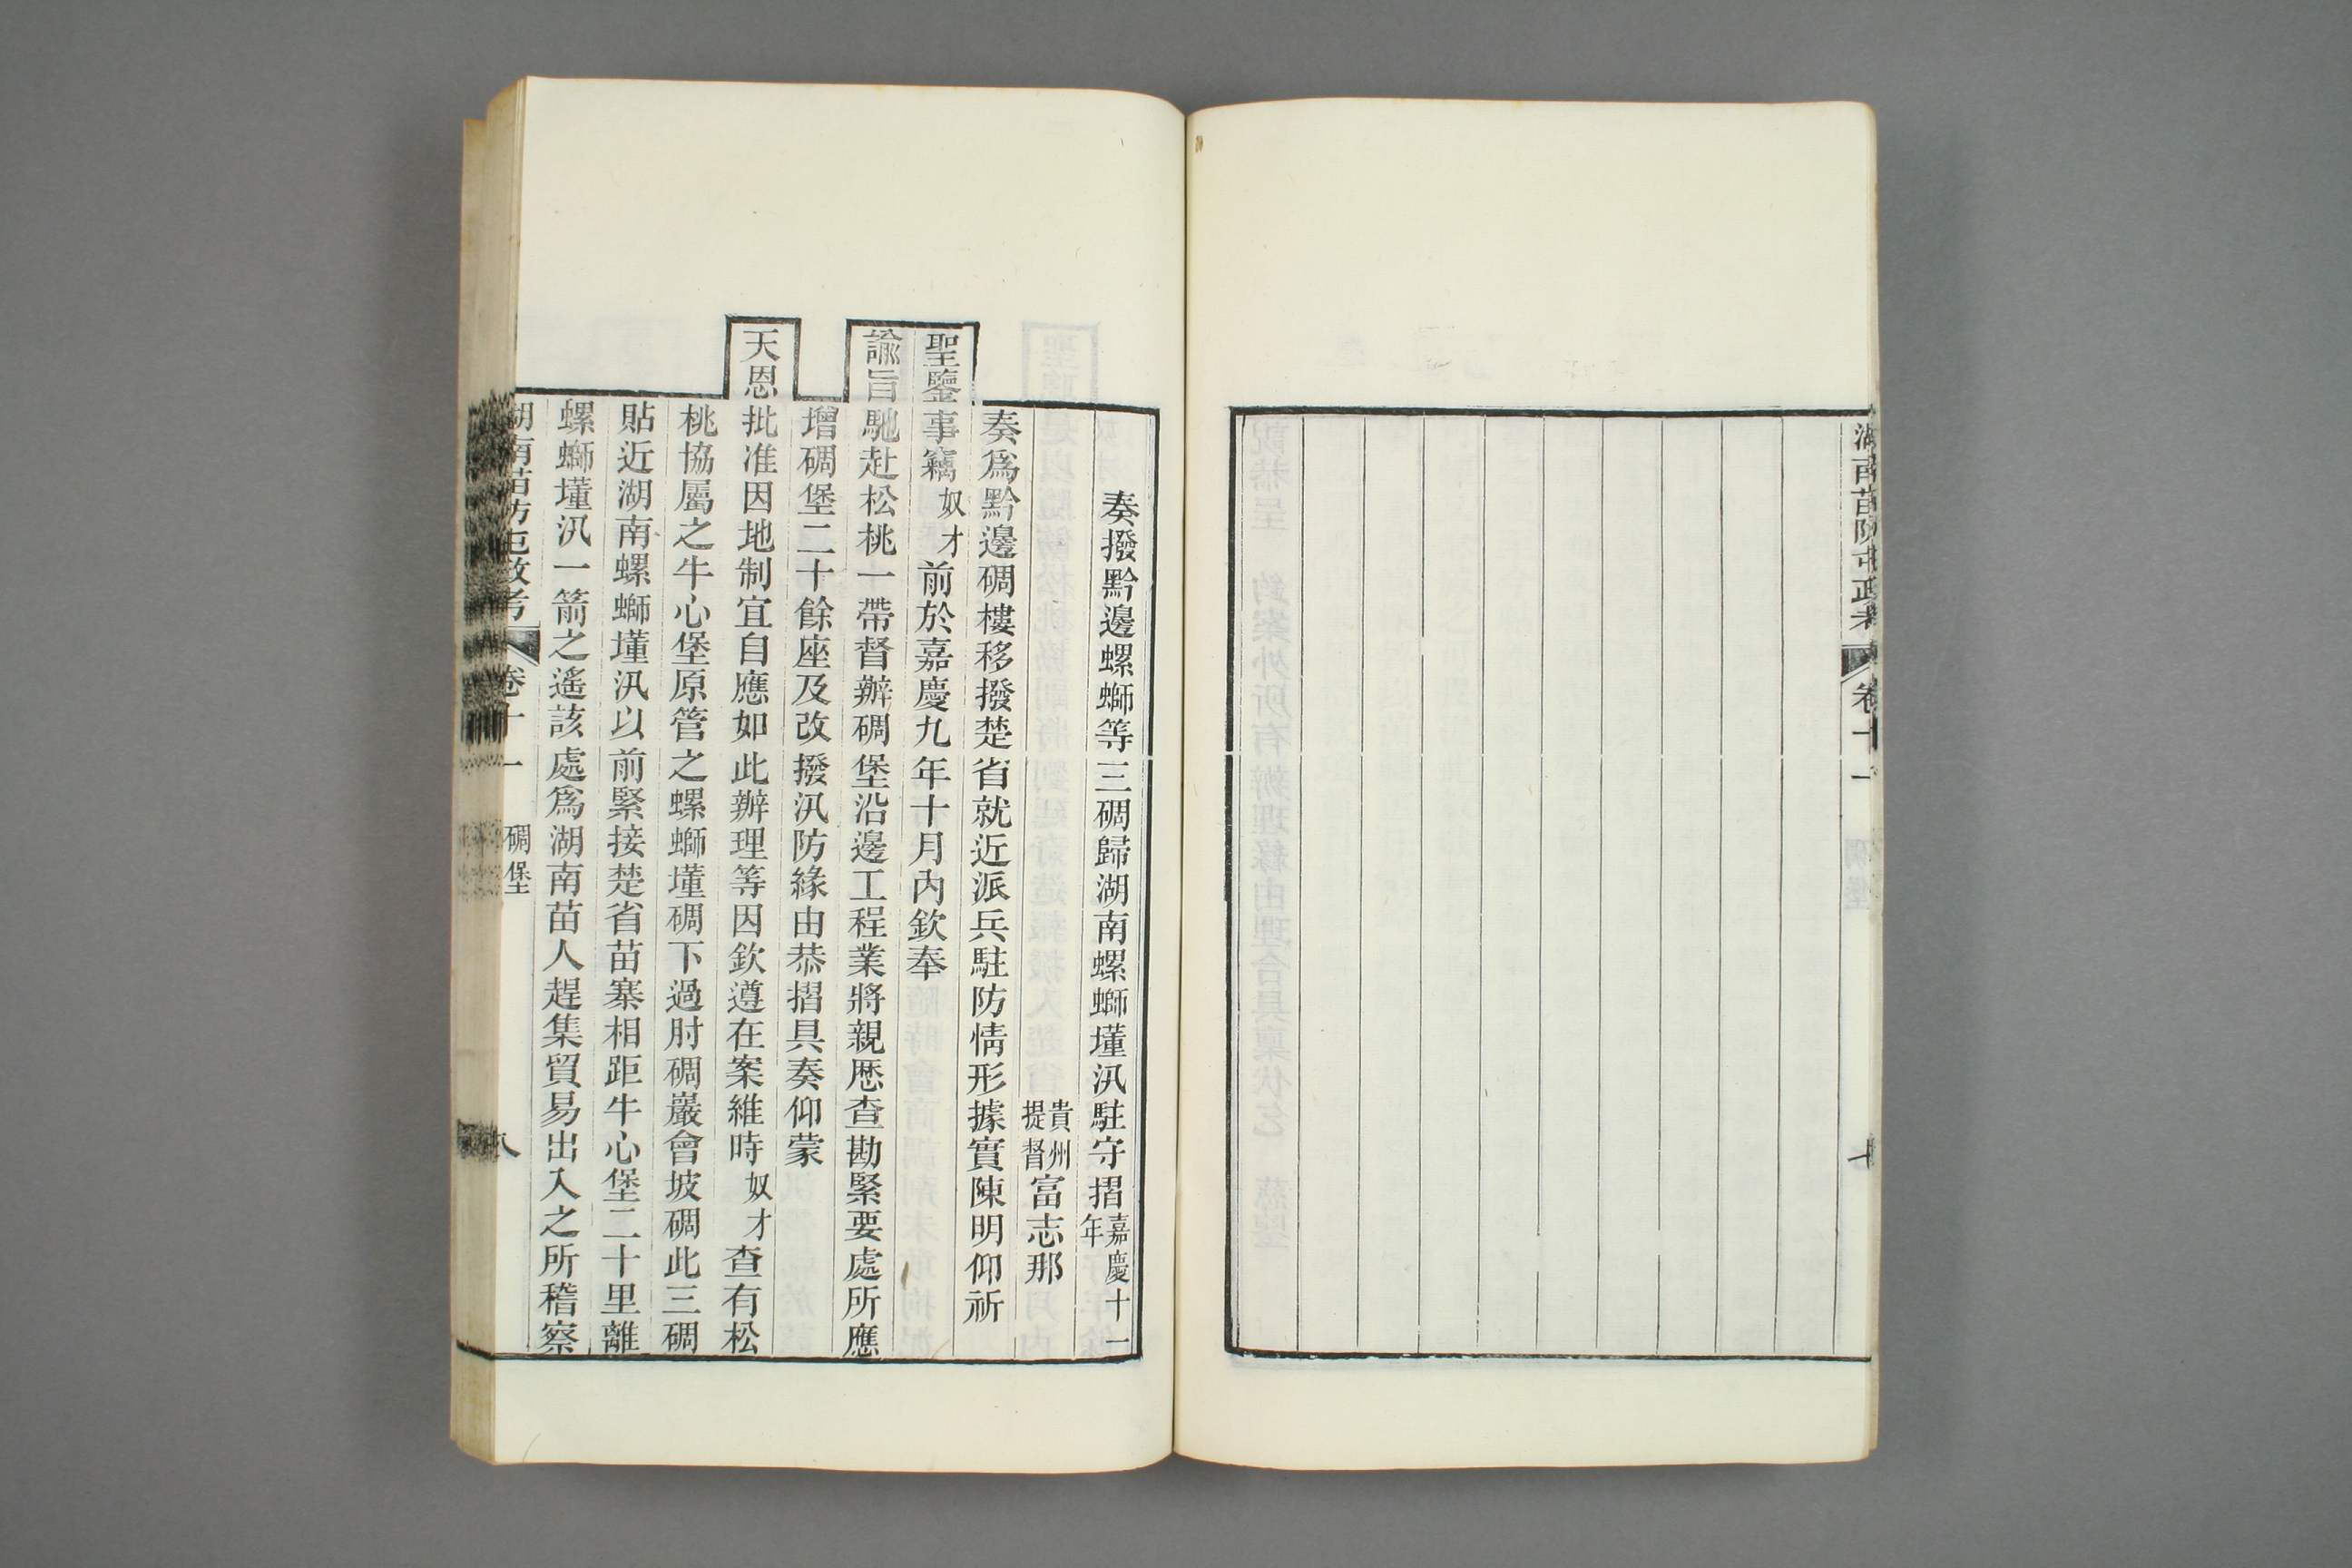 湖南苗防屯政考 卷十一
奏撥黔邊螺螄等三碉歸湖南螺螄墐汛駐守摺嘉慶十一年
貴州提督富志那
奏爲黔邊碉樓移撥楚省就近派兵駐防情形據實陳明仰祈
聖鑒事竊奴才前於嘉慶九年十月內欽奉
諭旨馳赴松桃一帶督辦碉堡沿邊工程業將親歷查勘緊要處所應
增碉堡二十餘座及改撥汛防緣由恭摺具奏仰蒙
天恩批准因地制宜自應如此辦理等因欽遵在案維時奴才查有松
桃協屬之牛心堡原管之螺螄墐碉下過肘碉巖會坡碉此三碉
貼近湖南螺螄墐汛以前緊接楚省苗寨相距牛心堡二十里離
螺螄墐汛一箭之遙該處爲湖南苗人趕集貿易出入之所稽察
湖南苗防屯政考 卷十一 碉堡 八